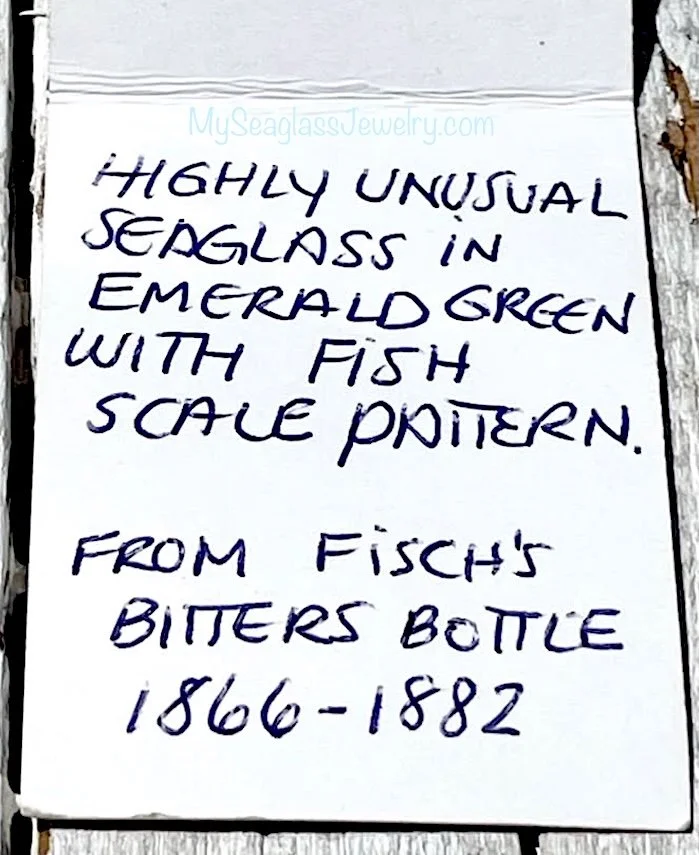 MySeaglassJewelry.com
HIGHLY UNUSUAL
SEAGLASS iN
EMERALD GREEN
WITH FiSH
SCALE PATTERN.
FROM FiSCH'S
BITTERS BOTTLE
1866-1882